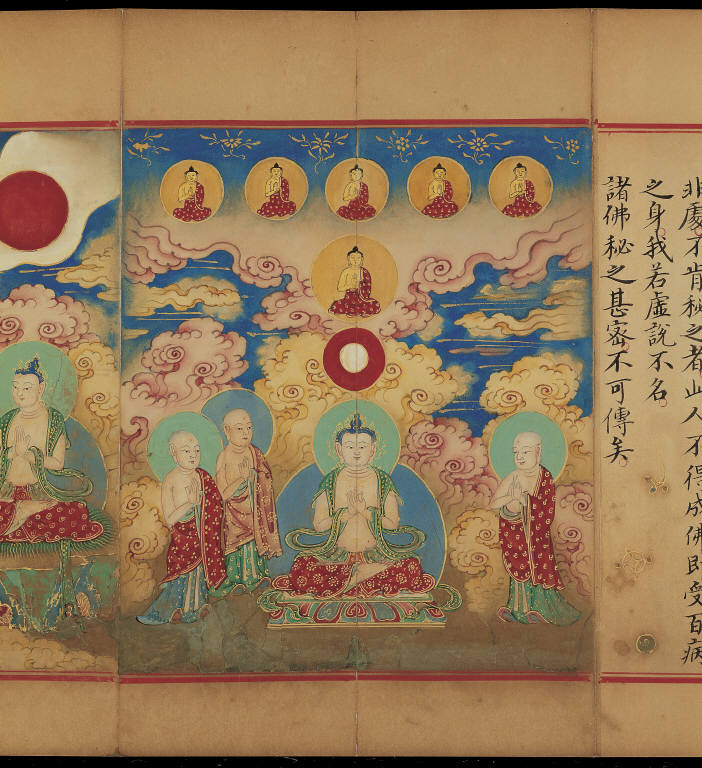 非處不肯秘之者此人不得成佛即受百病
之身我若虛說不名
諸佛秘之甚密不可傳矣